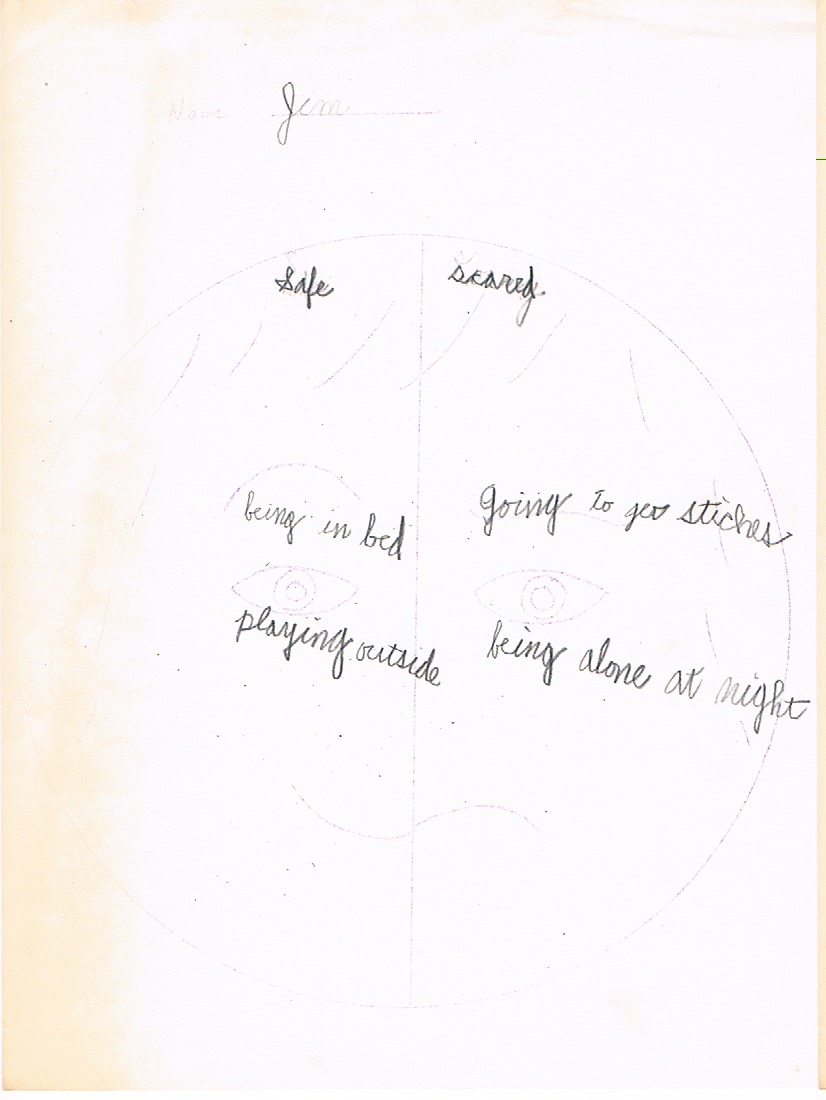 Name Jim
Safe scared
being in bed
playing outside
Going to get stiches
being alone at night